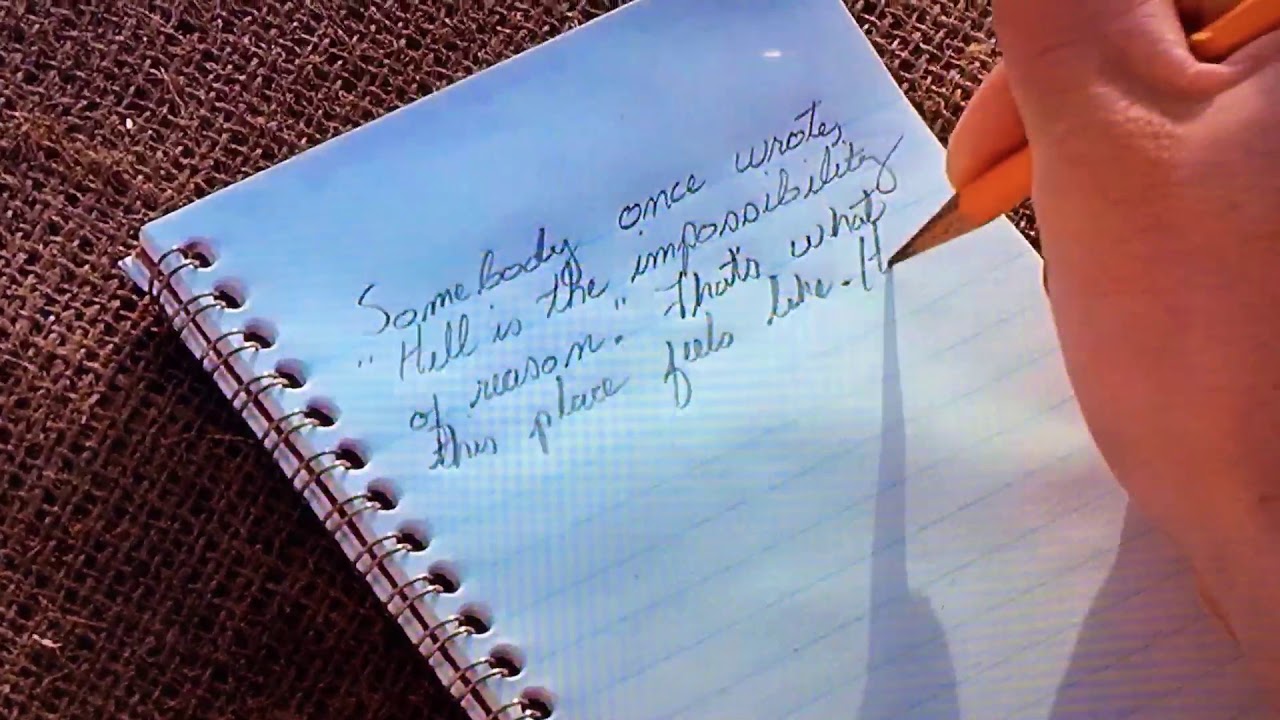 Somebody once wrote,
"Hell is the impossibility
of reason." That's what
this place feels like. H